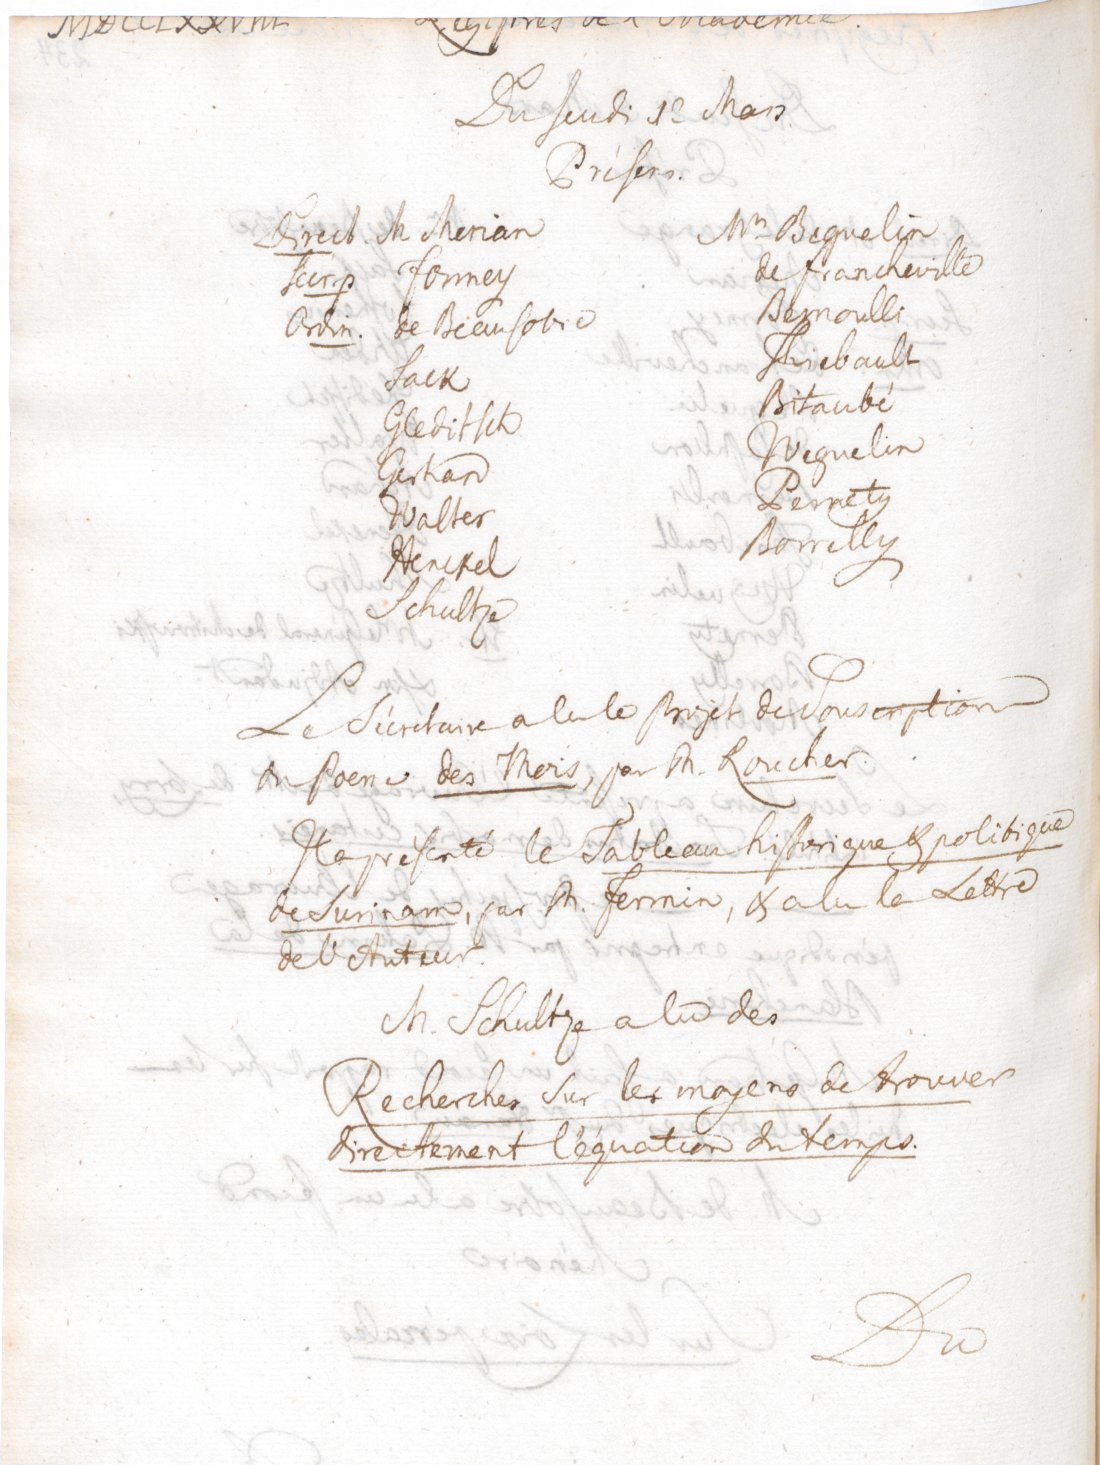 MDCCLXXVIII Registres de l'Academie.
Du Jeudi 12 Mars.
Présens.
Direct. M Merian
Secrp Formey
Ordin. de Beausobre
Sack
Gleditsch
Gerhard
Walter
Henckel
Schultze
Mrs Beguelin
de francheville
Bernoulli
Thiebault
Bitaubé
Weguelin
Pernety
Borrelly
Le Sécretaire a lu le Projet de Souscription
du Poeme des Mois, par M. Roucher.
Il a présenté le Tableau historique & politique
de Surinam, par M. Fermin, & a lu la Lettre
de l'Auteur.
M. Schultze a lu des
Recherches sur les moyens de trouver
directement l'équation du temps.
Du